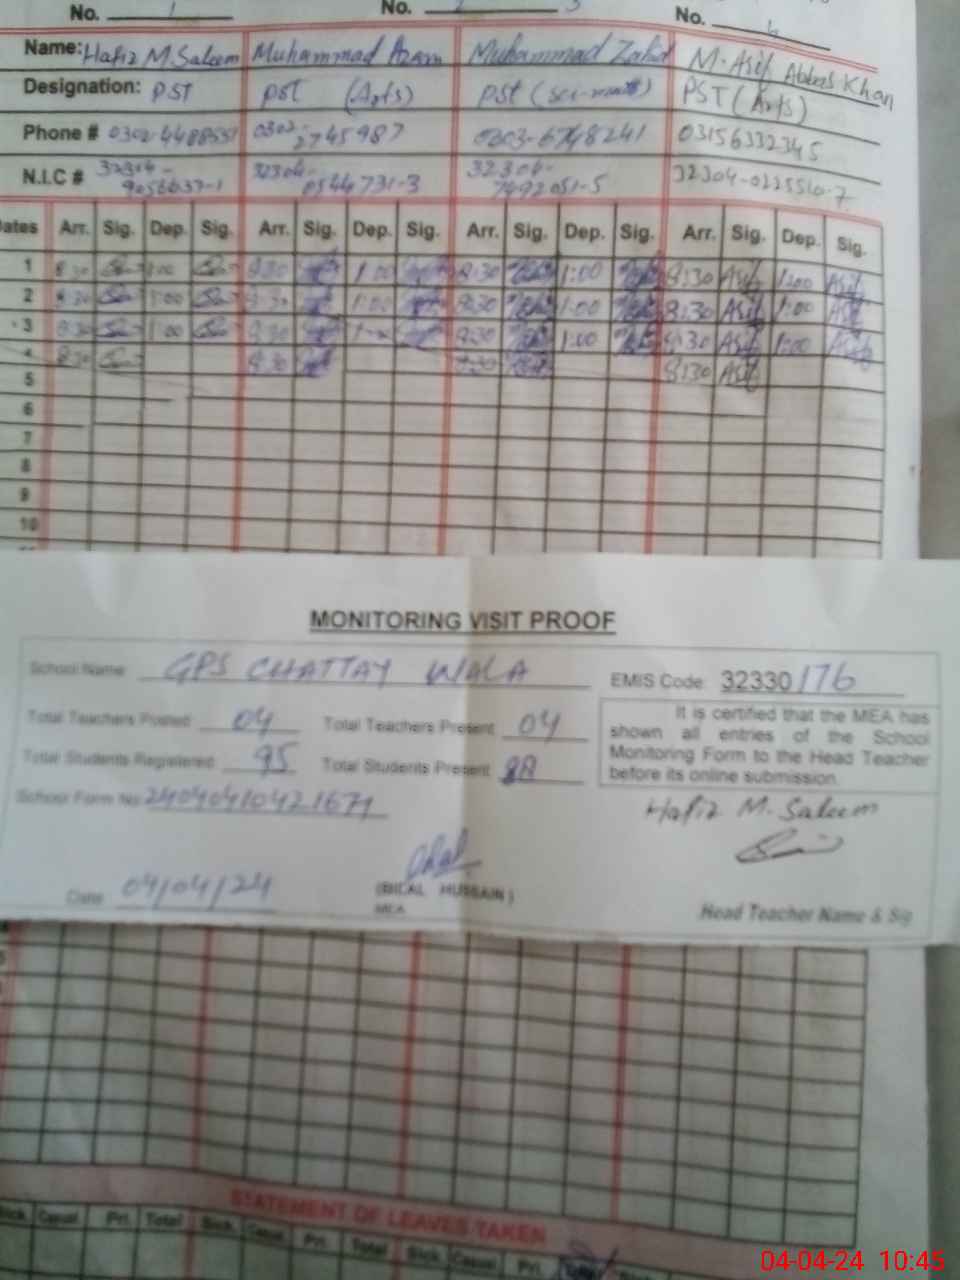 No. 1 No. No. 4
Name: Hafiz M. Saleem Muhammad Azam Muhammad Zahid M. Asif Abbas Khan
Designation: PST PST (Arts) PST (Sci-math) PST (Arts)
Phone # 0302-4488551 0302-2745987 0303-6748241 03156332345
N.I.C # 32304-9056637-1 32304-0544731-3 32304-7492051-5 32304-0225510-7
Dates Arr. Sig. Dep. Sig. Arr. Sig. Dep. Sig. Arr. Sig. Dep. Sig. Arr. Sig. Dep. Sig.
1 8:30 1:00 8:30 1:00 8:30 1:00 8:30 Asif 1:00 Asif
2 8:30 1:00 8:30 1:00 8:30 1:00 8:30 Asif 1:00 Asif
3 8:30 1:00 8:30 8:30 1:00 8:30 Asif 1:00 Asif
4 8:30 8:30 8:30 8:30 Asif
5
6
7
8
9
10
MONITORING VISIT PROOF
School Name GPS CHATTAY WALA EMIS Code: 32330176
Total Teachers Posted 04 Total Teachers Present 04
Total Students Registered 95 Total Students Present
It is certified that the MEA has
shown all entries of the School
Monitoring Form to the Head Teacher
before its online submission.
School Form No 24040410421671
Hafiz M. Saleem
Date 04/04/24
(BILAL HUSSAIN)
MEA
Head Teacher Name & Sig
STATEMENT OF LEAVES TAKEN
Sick. Casual. Pri. Total Sick. Casual. Pri. Total Sick. Casual. Pri.
04-04-24 10:45